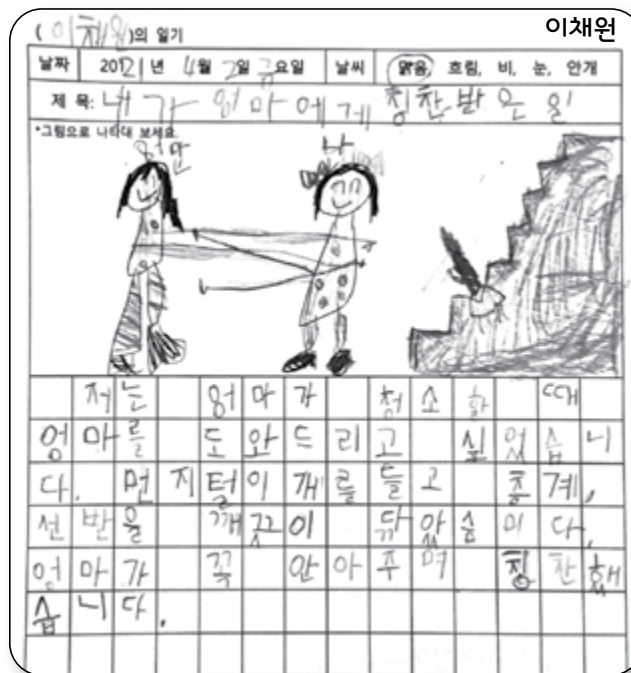 이채원
( 이채원 )의 일기
날짜 2021년 4월 2일 금요일 날씨 맑음, 흐림, 비, 눈, 안개
제 목: 내가 엄마에게 칭찬받은 일
*그림으로 나타내 보세요.
나
저는 엄마가 청소할 때
엄마를 도와드리고 싶었습니
다. 먼지털이개를 들고 층계,
선반을 깨끗이 닦았습니다.
엄마가 꼭 안아주며 칭찬했
습니다.